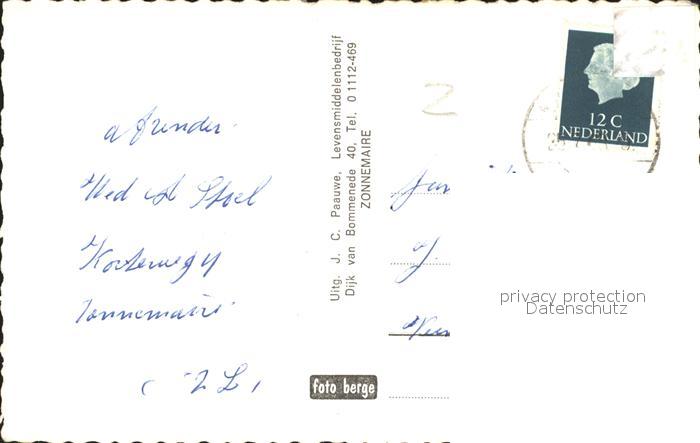 afzender.
Wed A Stoel
Kosterweg
Zonnemaire.
( ZL )
Uitg. J. C. Paauwe, Levensmiddelenbedrijf
Dijk van Bommenede 40, Tel. 0 1112-469
ZONNEMAIRE
foto berge
2
12 C
NEDERLAND
J.
privacy protection
Datenschutz